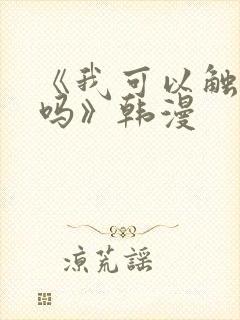 《我可以触
吗》韩漫
凉荒謡